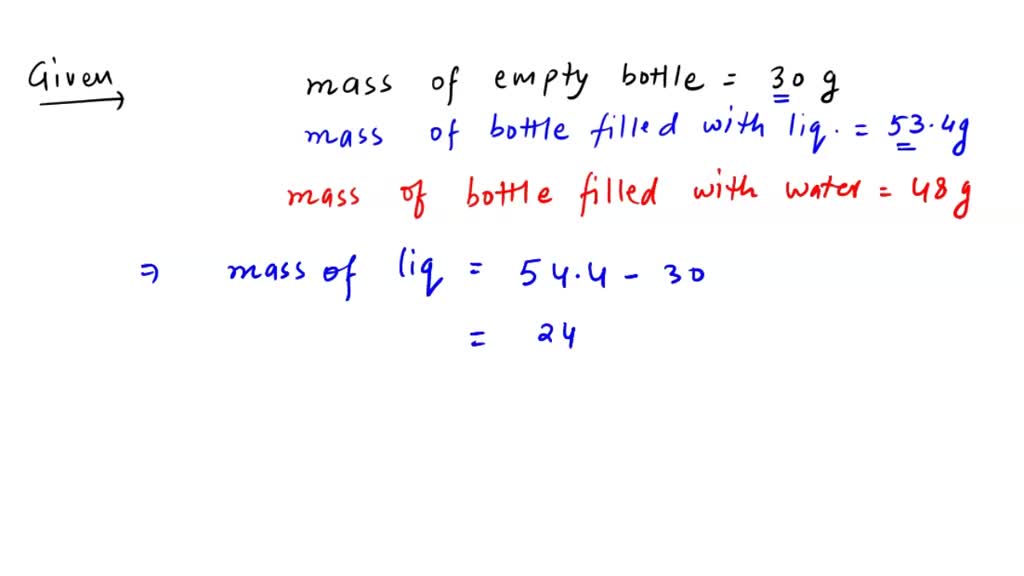 Given
mass of empty bottle = 30 g
mass of bottle filled with liq. = 53.4g
mass of bottle filled with water = 48 g
⇒ mass of liq = 54.4 - 30
= 24